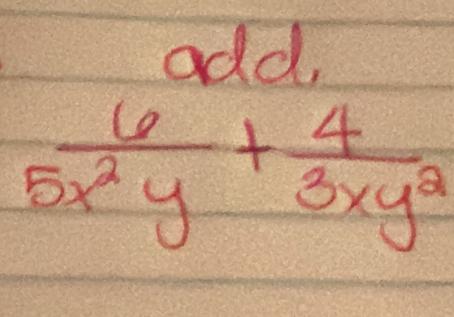 add.
6/(5x²y) + 4/(3xy²)